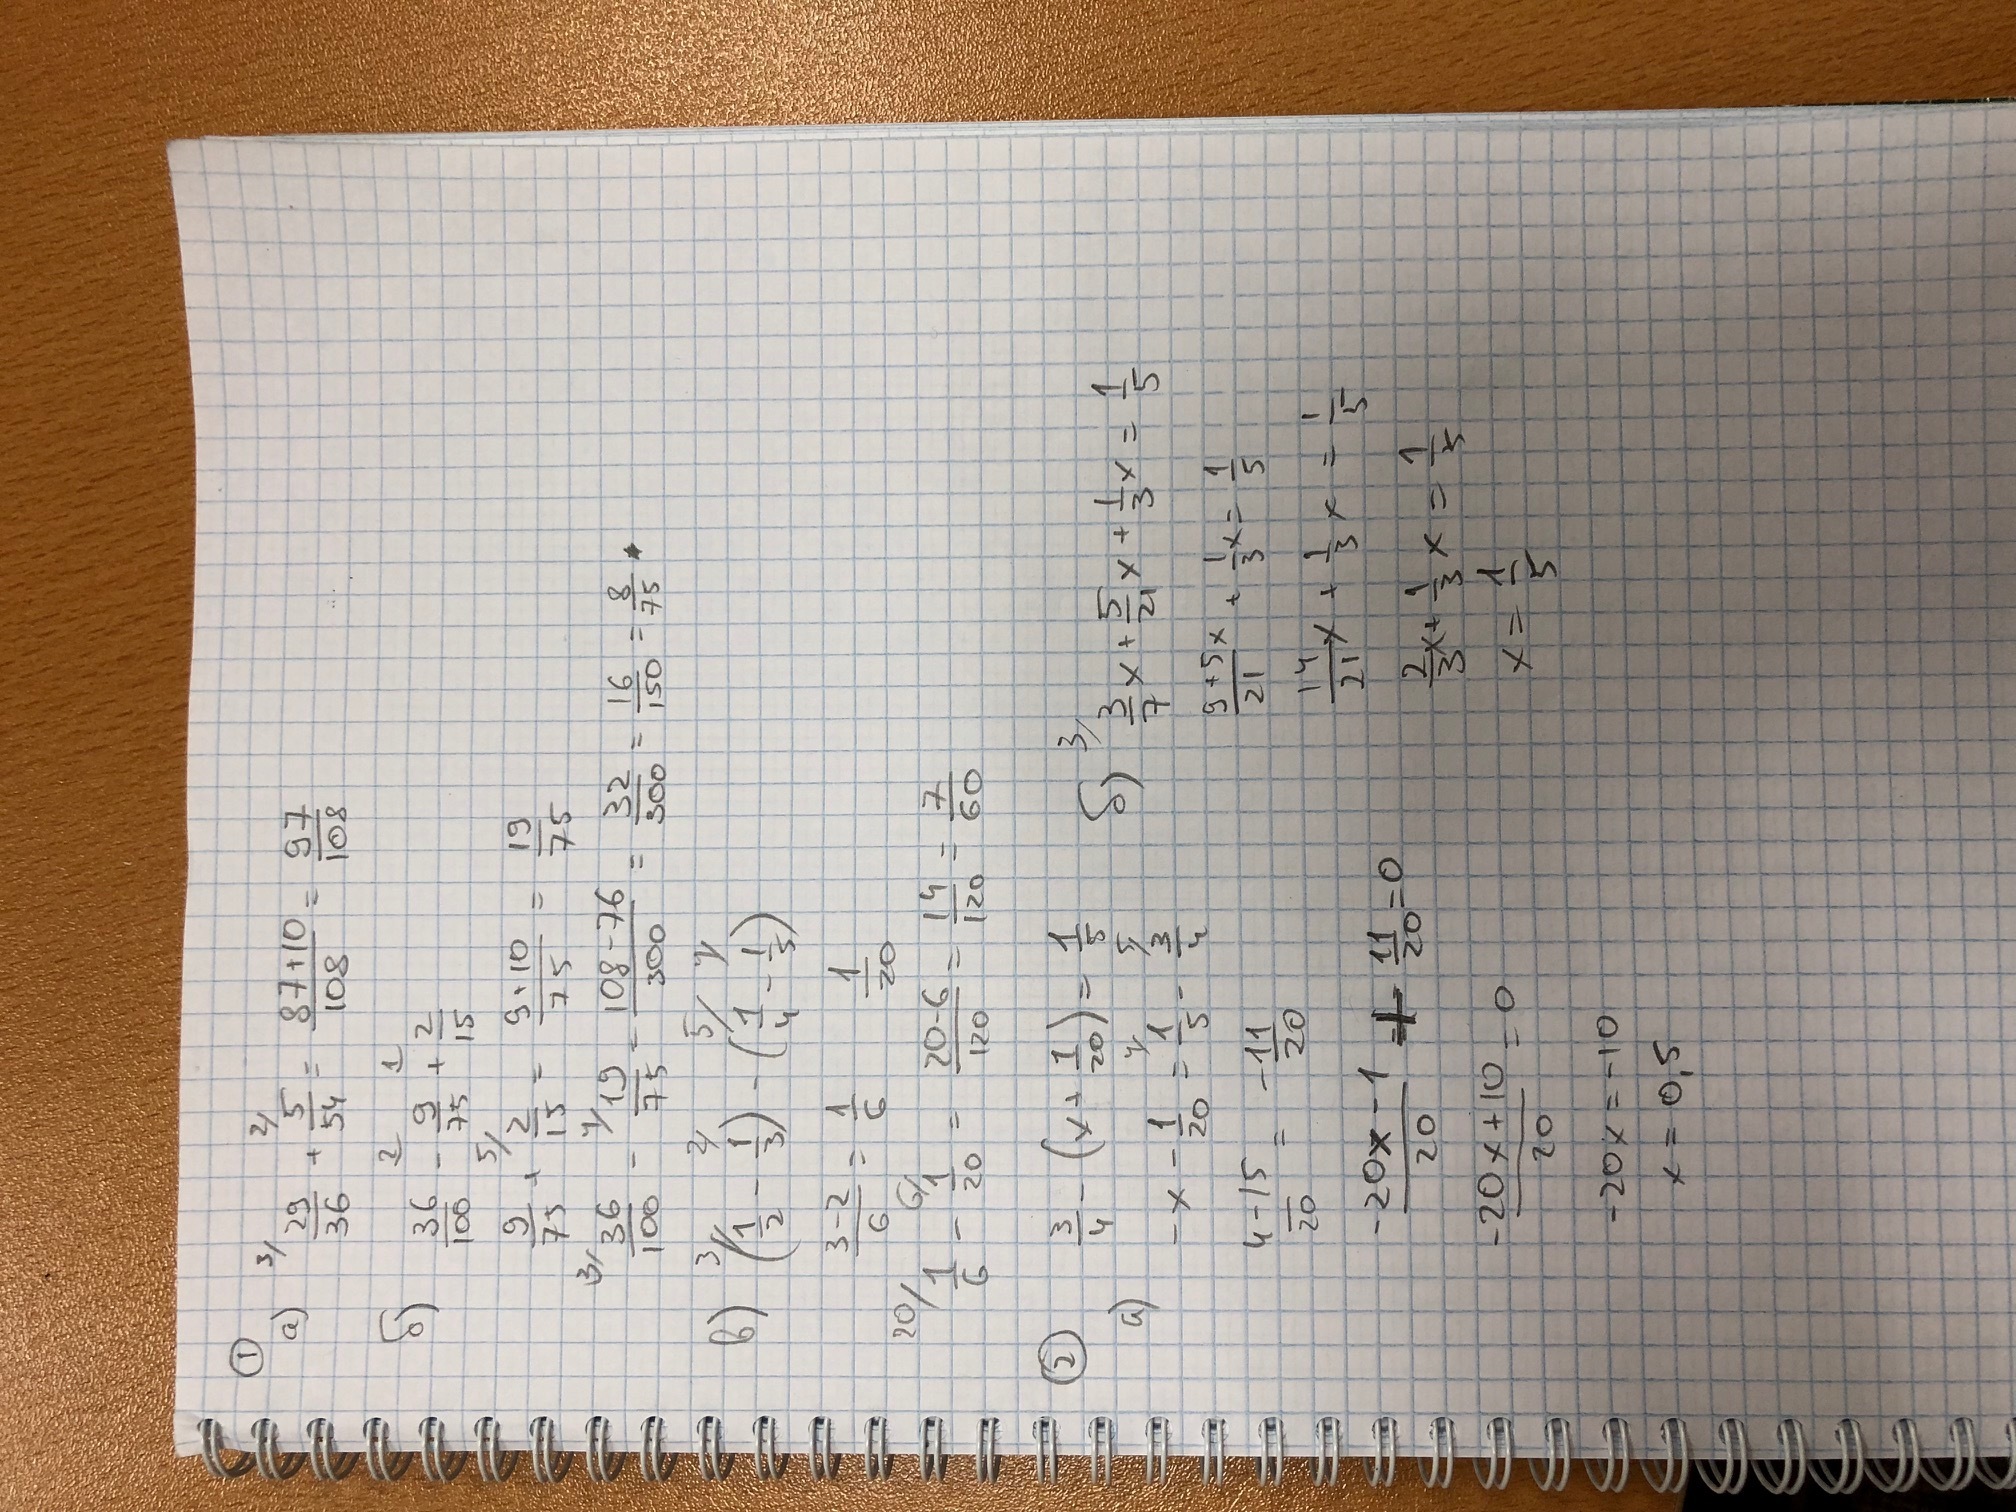 ①
а) 3/ 29/36 + 2/ 5/54 = (87+10)/108 = 97/108
б) 2 1
36/100 - 9/75 + 2/15
9/75 + 5/ 2/15 = (9+10)/75 = 19/75
3/ 36/100 - 4/ 19/75 = (108-76)/300 = 32/300 = 16/150 = 8/75
в) 3/ (1/2 - 2/ 1/3) - (5/ 1/4 - 4/ 1/5)
(3-2)/6 = 1/6 1/20
20/ 1/6 - 6/ 1/20 = (20-6)/120 = 14/120 = 7/60
②
а) 3/4 - (x + 1/20) = 1/5
-x - 1/20 = 4/ 1/5 - 5/ 3/4
(4-15)/20 = -11/20
(-20x-1)/20 + 11/20 = 0
(-20x+10)/20 = 0
-20x = -10
x = 0,5
б) 3/ 3/7 x + 5/21 x + 1/3 x = 1/5
(9+5)/21 x + 1/3 x = 1/5
14/21 x + 1/3 x = 1/5
2/3 x + 1/3 x = 1/5
x = 1/5